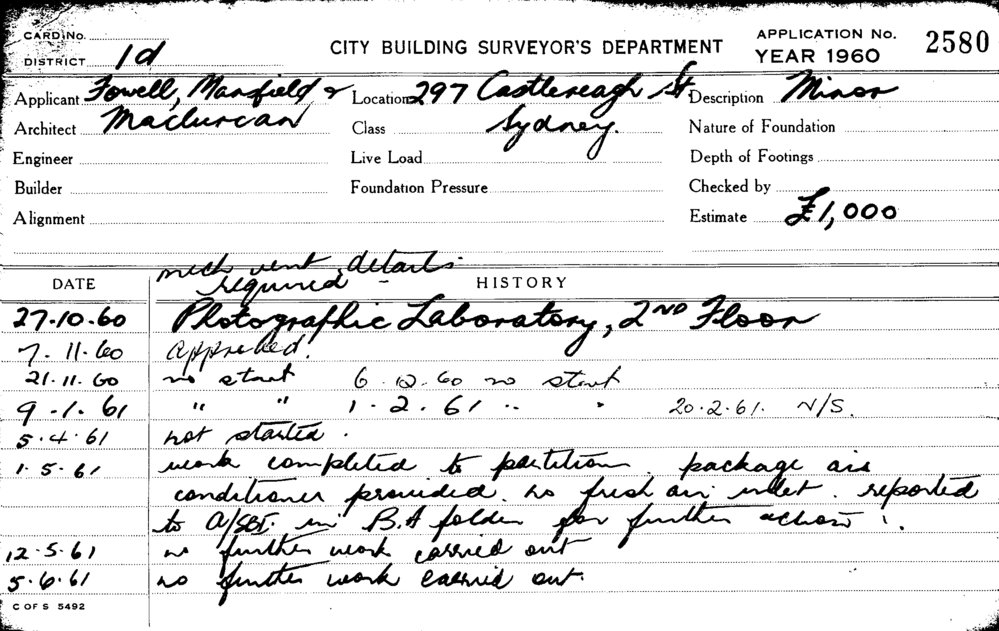 CARD No.
DISTRICT 1d
CITY BUILDING SURVEYOR'S DEPARTMENT
APPLICATION No. 2580
YEAR 1960
Applicant Fowell, Mansfield & Location 297 Castlereagh St Description Minor
Architect Maclurcan Class Sydney. Nature of Foundation
Engineer Live Load Depth of Footings
Builder Foundation Pressure Checked by
Alignment Estimate £1,000
mech vent details
required -
DATE HISTORY
27.10.60 Photographic Laboratory, 2ND Floor
7.11.60 approved.
21.11.60 no start 6.12.60 no start
9.1.61 " " 1.2.61 " " 20.2.61. N/S.
5.4.61 not started.
1.5.61 work completed to partition. package air
conditioner provided. no fresh air inlet. reported
to A/SBI. in B.A folder for further action.
12.5.61 no further work carried out
5.6.61 no further work carried out.
C OF S 5492